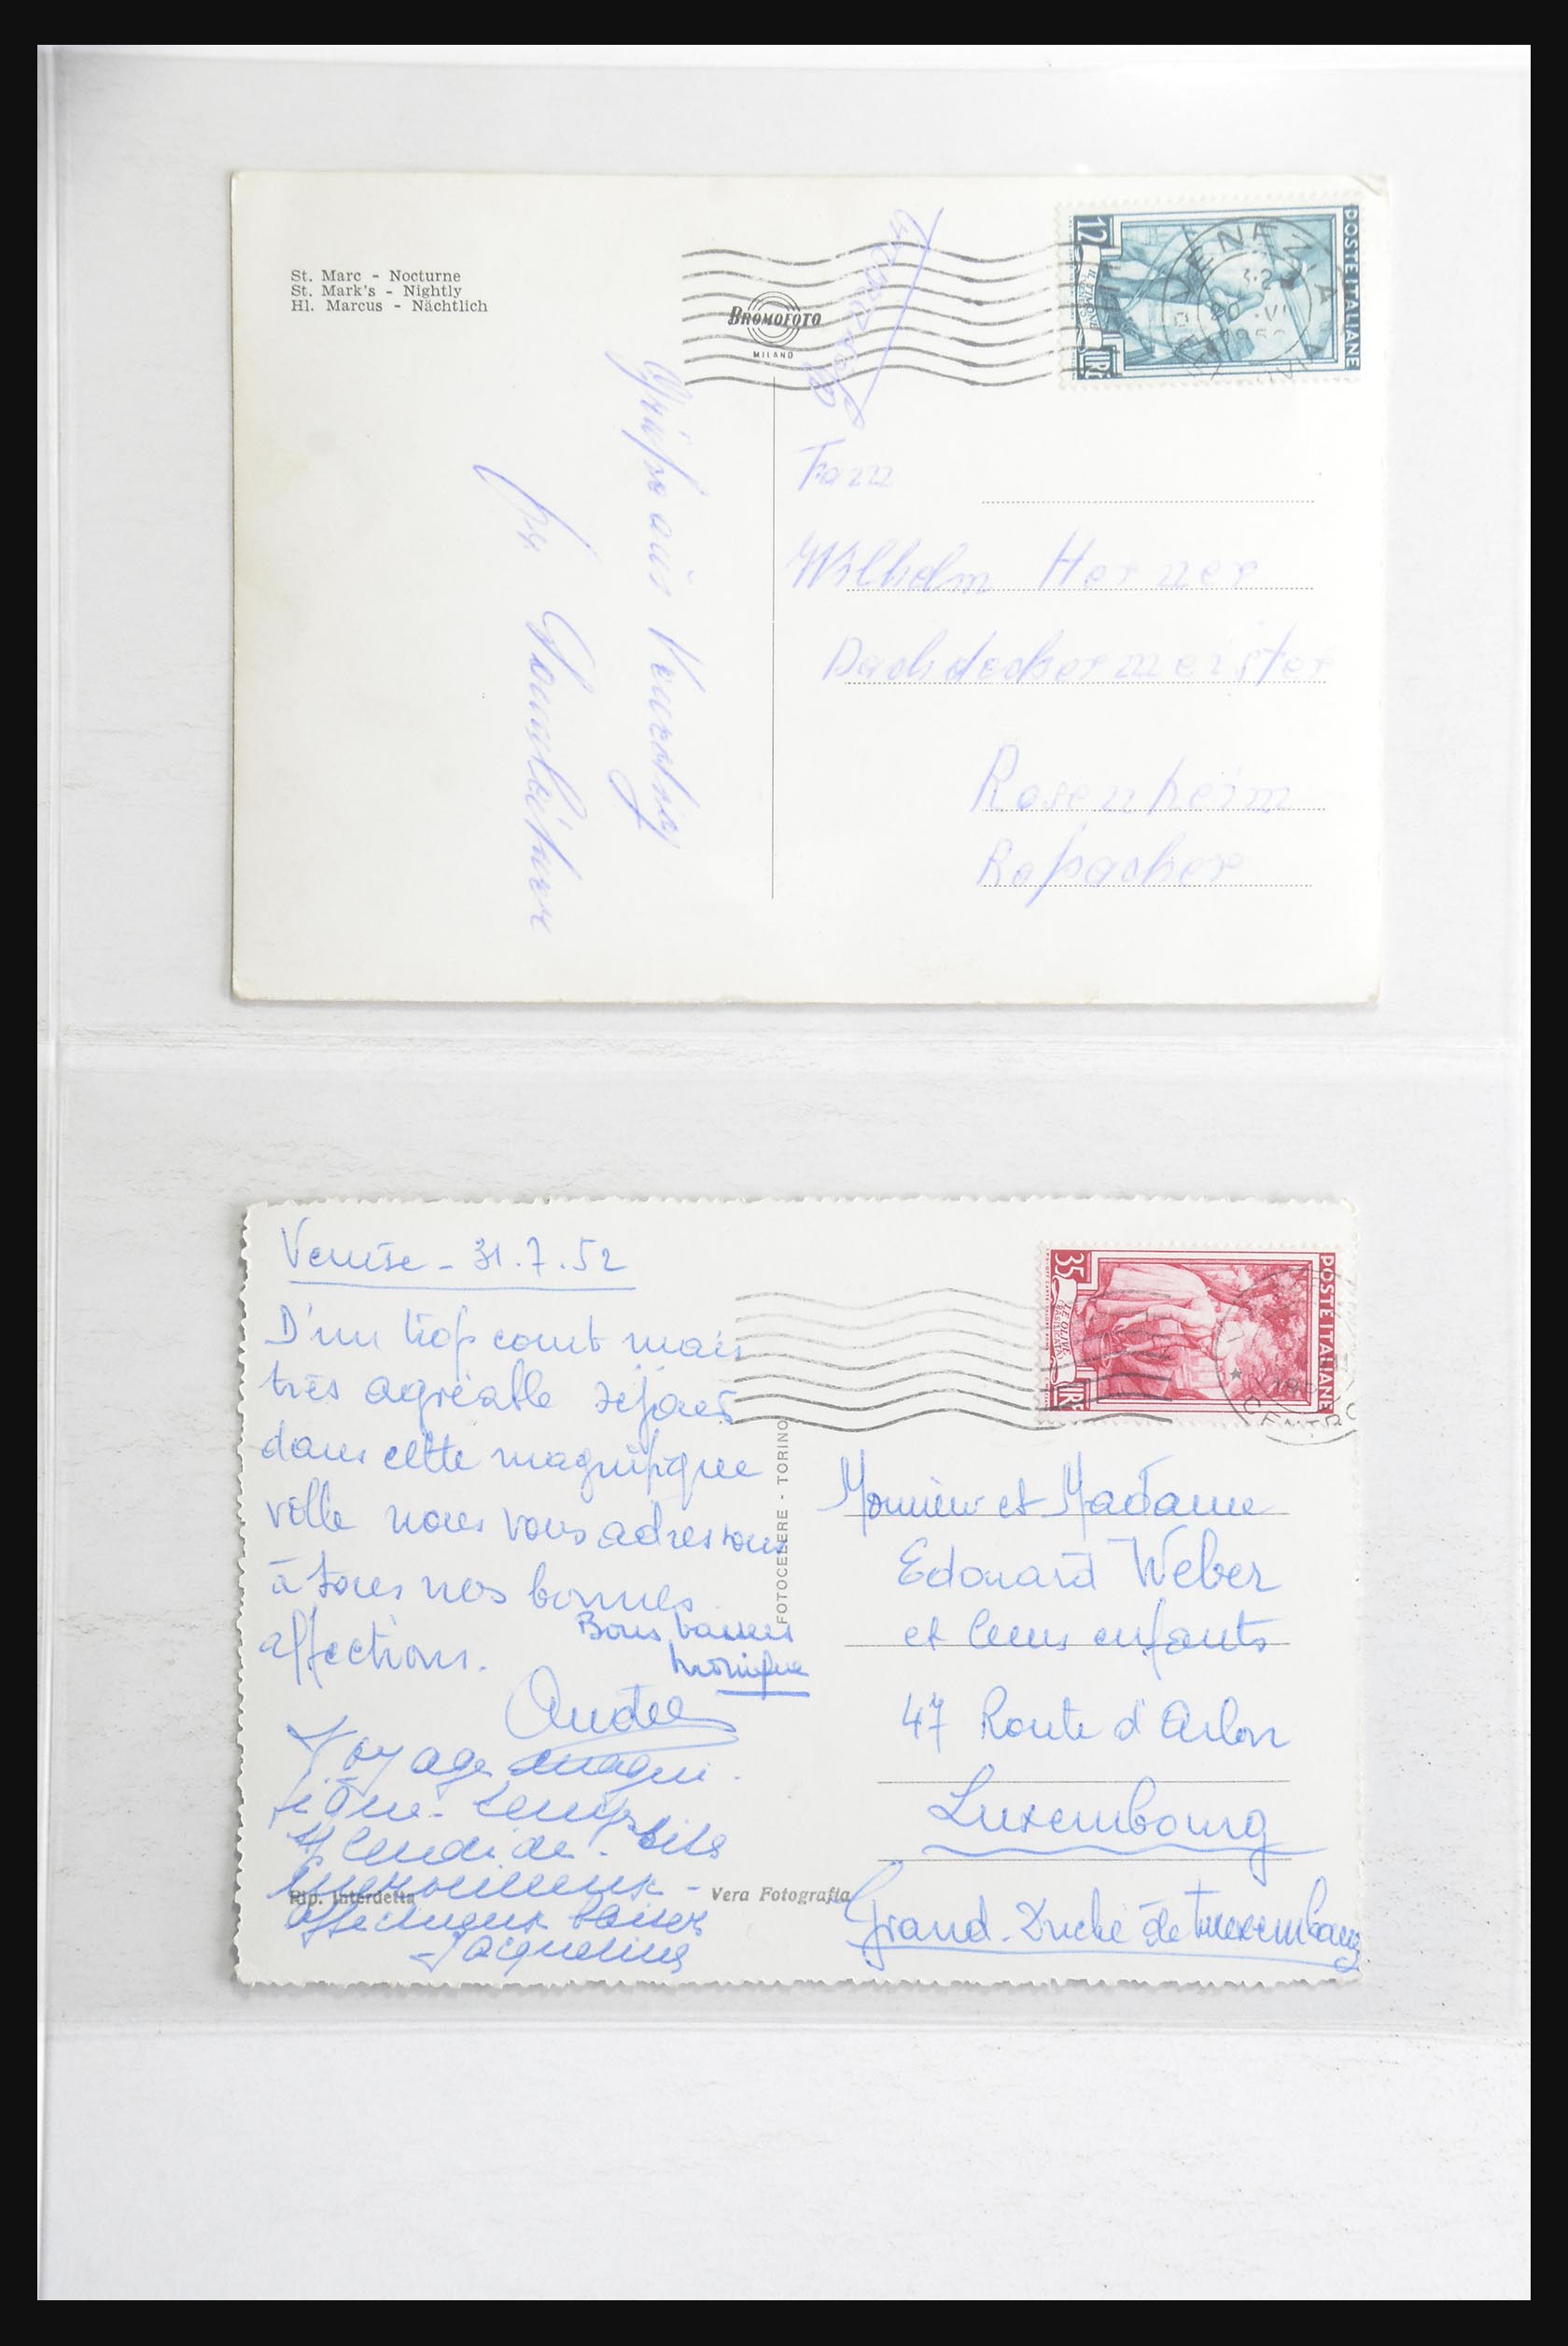 St. Marc - Nocturne
St. Mark's - Nightly
Hl. Marcus - Nächtlich
BROMOFOTO
MILANO
12
POSTE ITALIANE
LIRE
VENEZIA
20 VI
Grüße aus Venedig
Wilhelm Horner
Dachdeckermeister
Rosenheim
Venise - 31.7.52
D'un trop court mais
très agréable séjour
dans cette magnifique
ville nous vous adressons
à tous nos bonnes
affections.
Bons baisers
Monique
Andrée
Voyage magni-
fique. Temps
splendide.
merveilleux -
Affectueux baisers
Jacqueline
Rip. Interdetta
Vera Fotografia
FOTOCELERE - TORINO
35
POSTE ITALIANE
LE OLIVE
LIRE
CENTRO
Monsieur et Madame
Edouard Weber
et leurs enfants
47 Route d'Arlon
Luxembourg
Grand-Duché de Luxembourg